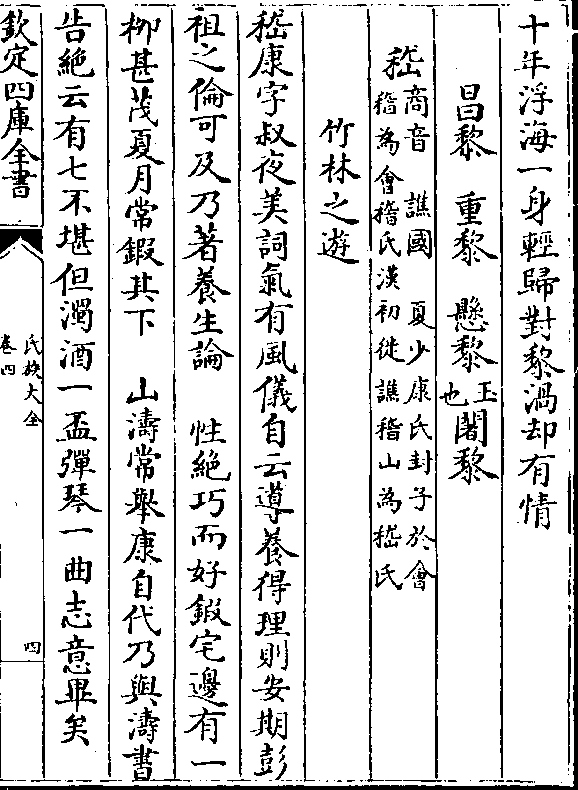 十年浮海一身輕歸對黎渦却有情
昌黎　重黎　懸黎玉也闍黎
嵇商音　譙國　夏少康氏封子於會
稽為會稽氏漢初徙譙稽山為嵇氏
竹林之遊
嵇康字叔夜美詞氣有風儀自云導養得理則安期彭
祖之倫可及乃著養生論　性絶巧而好鍛宅邊有一
柳甚茂夏月常鍜其下　山濤常舉康自代乃與濤書
告絶云有七不堪但濁酒一盃彈琴一曲志意畢矣
欽定四庫全書
氏族大全
卷四
四